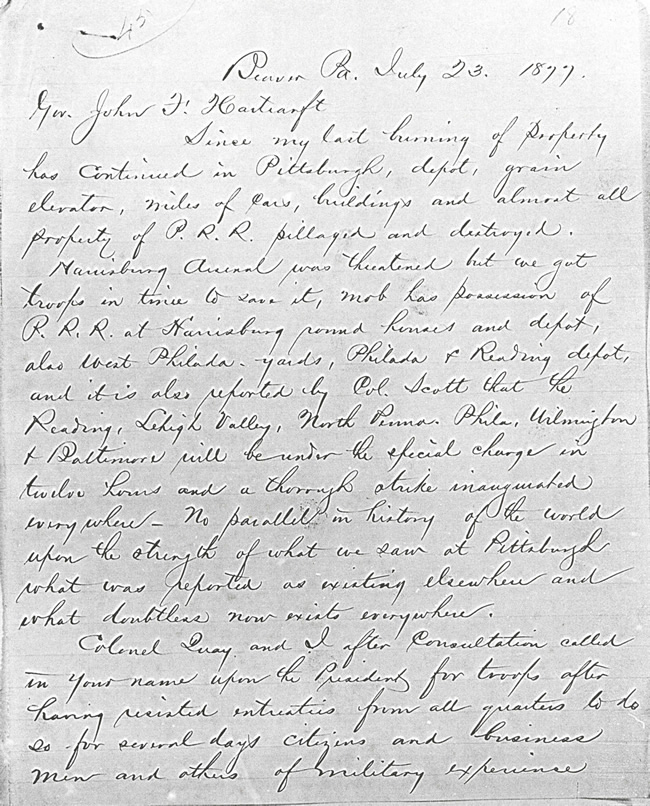 45
18
Beaver Pa. July 23. 1877.
Gov. John F. Hartranft
Since my last burning of property
has continued in Pittsburgh, depot, grain
elevator, miles of cars, buildings and almost all
property of P. R. R. pillaged and destroyed.
Harrisburg Arsenal was threatened but we got
troops in time to save it, mob has possession of
P. R. R. at Harrisburg round houses and depot,
also West Philada - yards, Philada & Reading depot,
and it is also reported by Col. Scott that the
Reading, Lehigh Valley, North Penna. Phila, Wilmington
& Baltimore will be under the special charge in
twelve hours and a thorough strike inaugurated
everywhere - No parallel in history of the world
upon the strength of what we saw at Pittsburgh
what was reported as existing elsewhere and
what doubtless now exists everywhere.
Colonel Quay and I after Consultation called
in your name upon the President for troops after
having resisted entreaties from all quarters to do
so for several days citizens and business
men and others of military experience